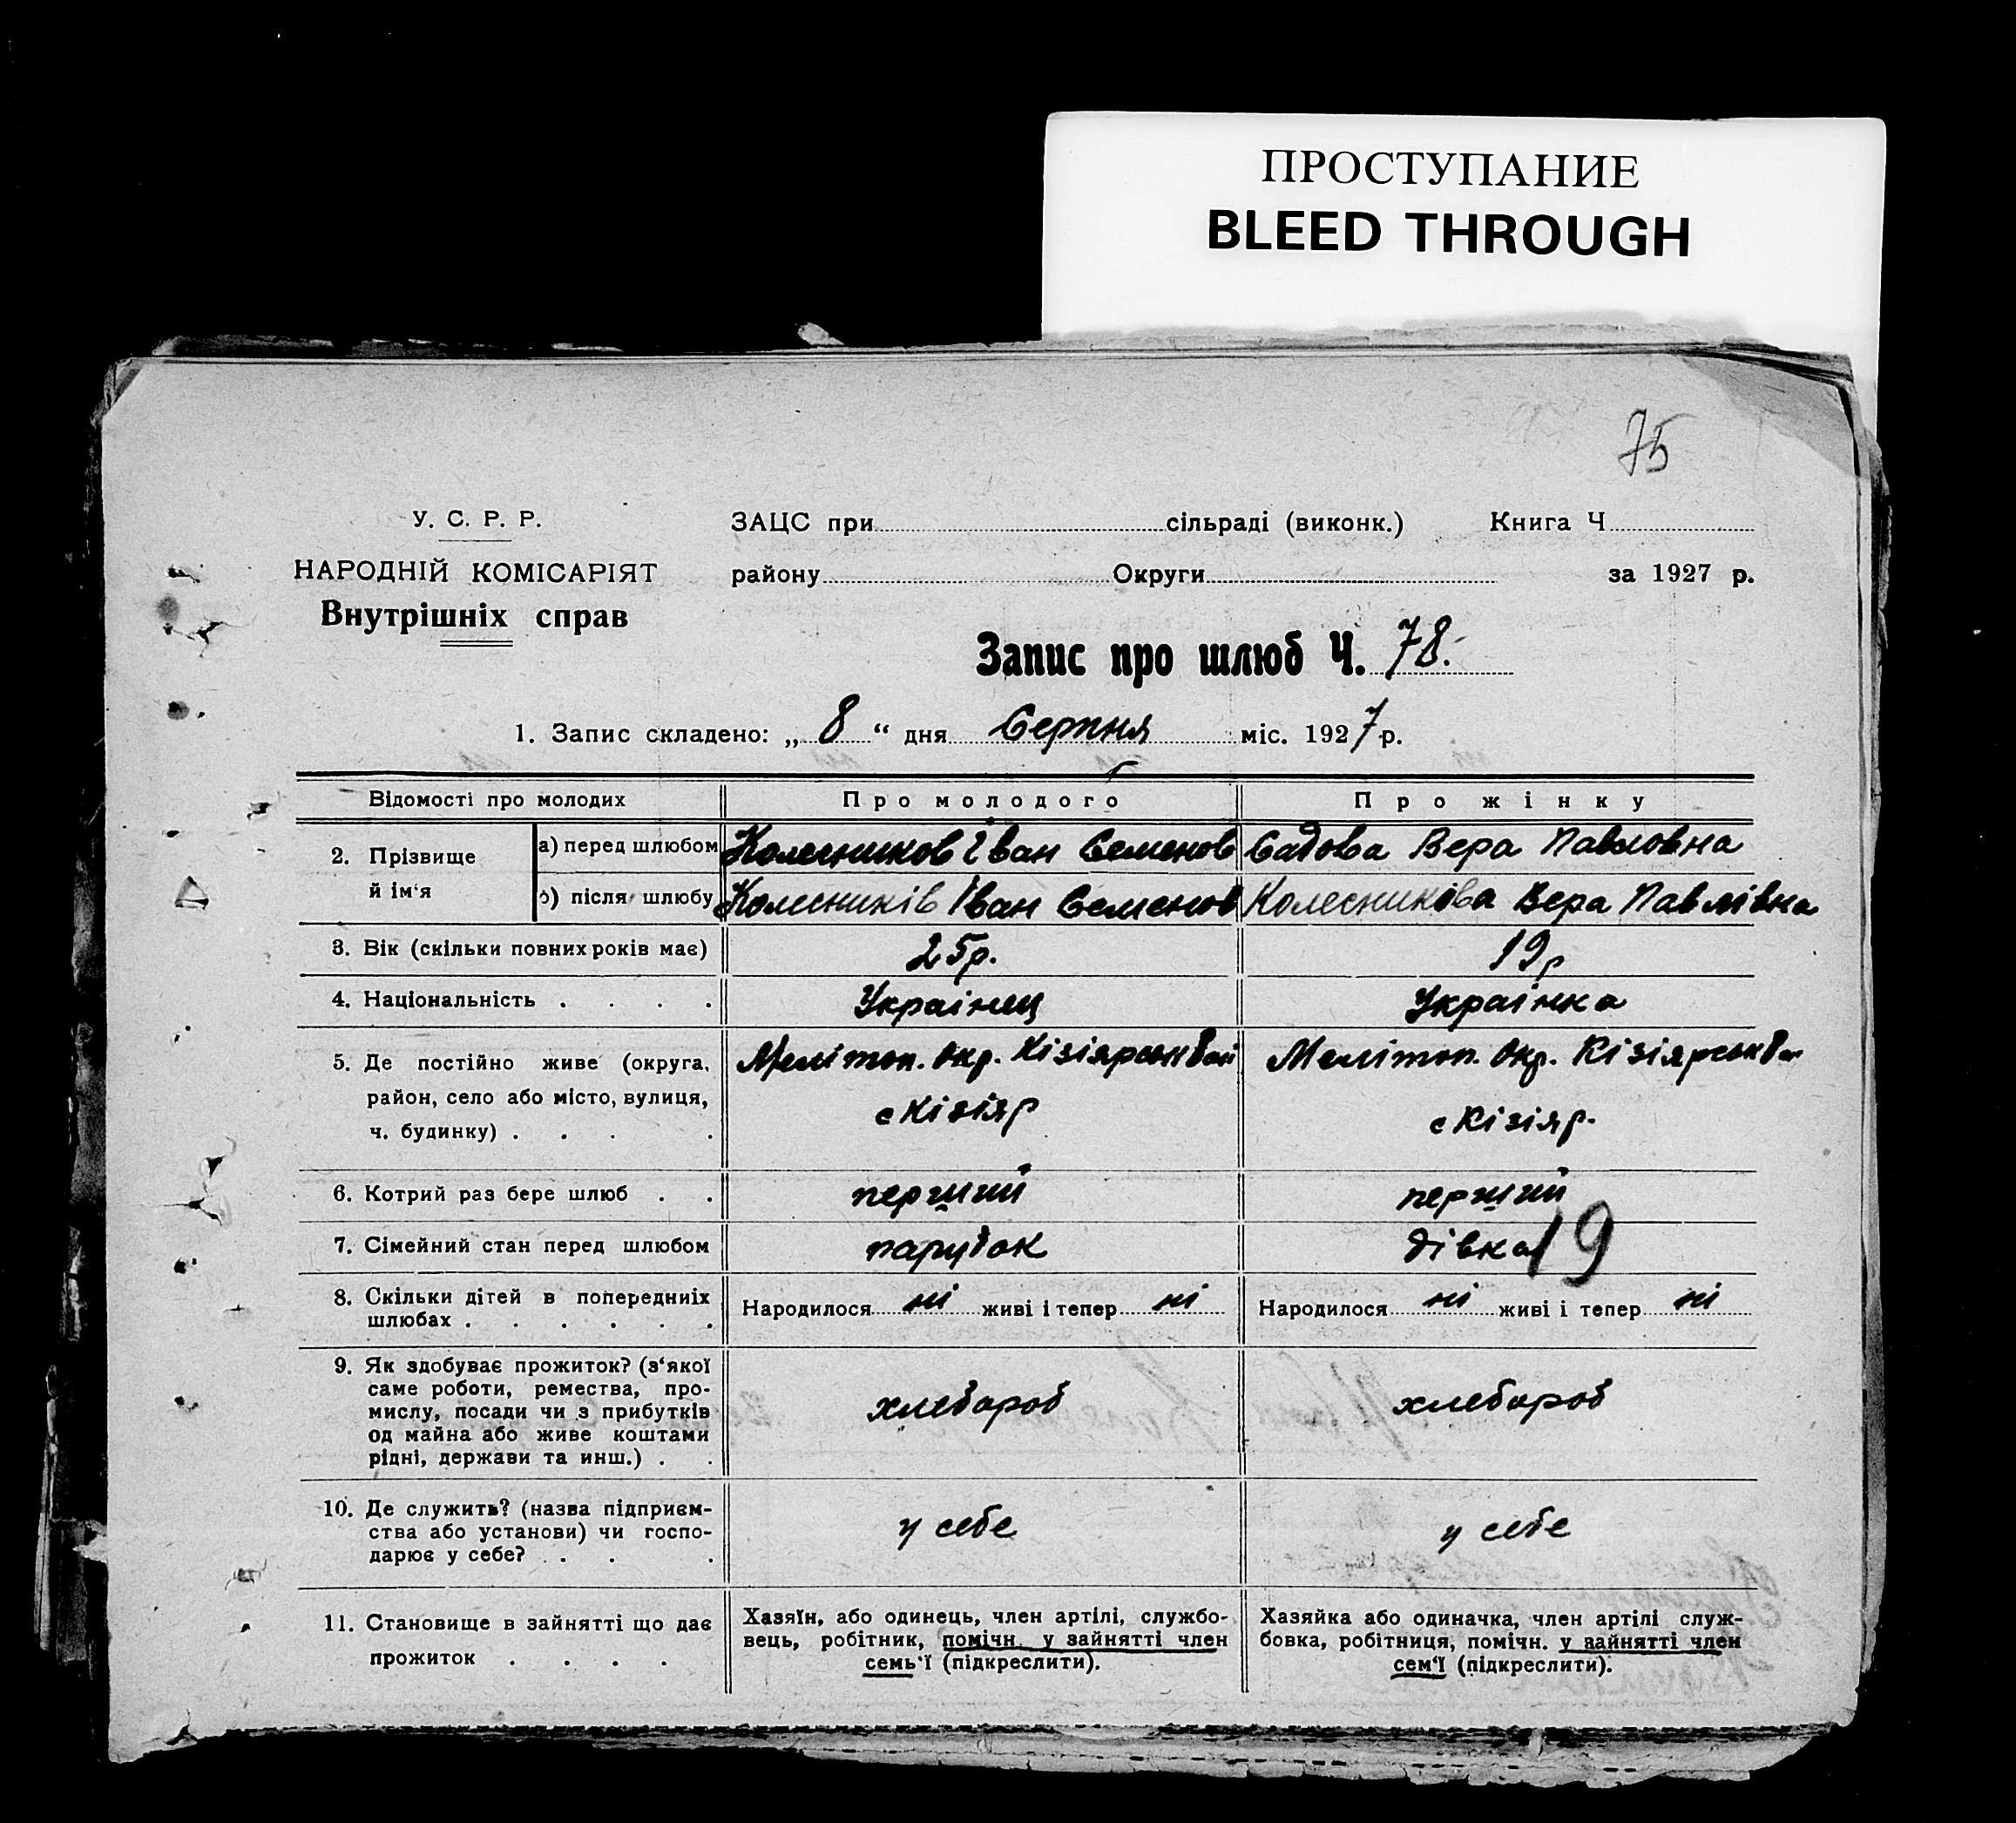 ПРОСТУПАНИЕ
BLEED THROUGH
75
У. С. Р. Р.
НАРОДНІЙ КОМІСАРІЯТ
Внутрішніх справ
ЗАЦС при сільраді (виконк.) Книга Ч
району Округи за 1927 р.
Запис про шлюб Ч. 78.
1. Запис складено: „ 8 “ дня Серпня міс. 1927 р.
Відомості про молодих Про молодого Про жінку
2. Прізвище й ім‘я
а) перед шлюбом Колесников Іван Семенов Садова Вера Павловна
б) після шлюбу Колесників Іван Семенов Колесниківа Вера Павлівна
3. Вік (скільки повних років має) 25р. 19р
4. Національність . . . . Украінец Украінка
5. Де постійно живе (округа, Мелітоп. Окр. Мелітоп. Окр.
район, село або місто, вулиця, с Кізіяр с Кізіяр.
ч. будинку) . . . .
6. Котрий раз бере шлюб . . перший перший
7. Сімейний стан перед шлюбом парубок дівка 19
8. Скільки дітей в попередниіх Народилося ні живі і тепер ні Народилося ні живі і тепер ні
шлюбах . . . . . .
9. Як здобуває прожиток? (з‘якої
саме роботи, ремества, про-
мислу, посади чи з прибутків хлебороб хлебороб
од майна або живе коштами
рідні, держави та инш.) . .
10. Де служить? (назва підприєм-
ства або установи) чи госпо- у себе у себе
дарює у себе? . . .
11. Становище в зайнятті що дає
прожиток . . . .
Хазяїн, або одинець, член артілі, службо-
вець, робітник, помічн. у зайнятті член
семь‘ї (підкреслити).
Хазяйка або одиначка, член артілі служ-
бовка, робітниця, помічн. у зайнятті член
сем‘ї (підкреслити).